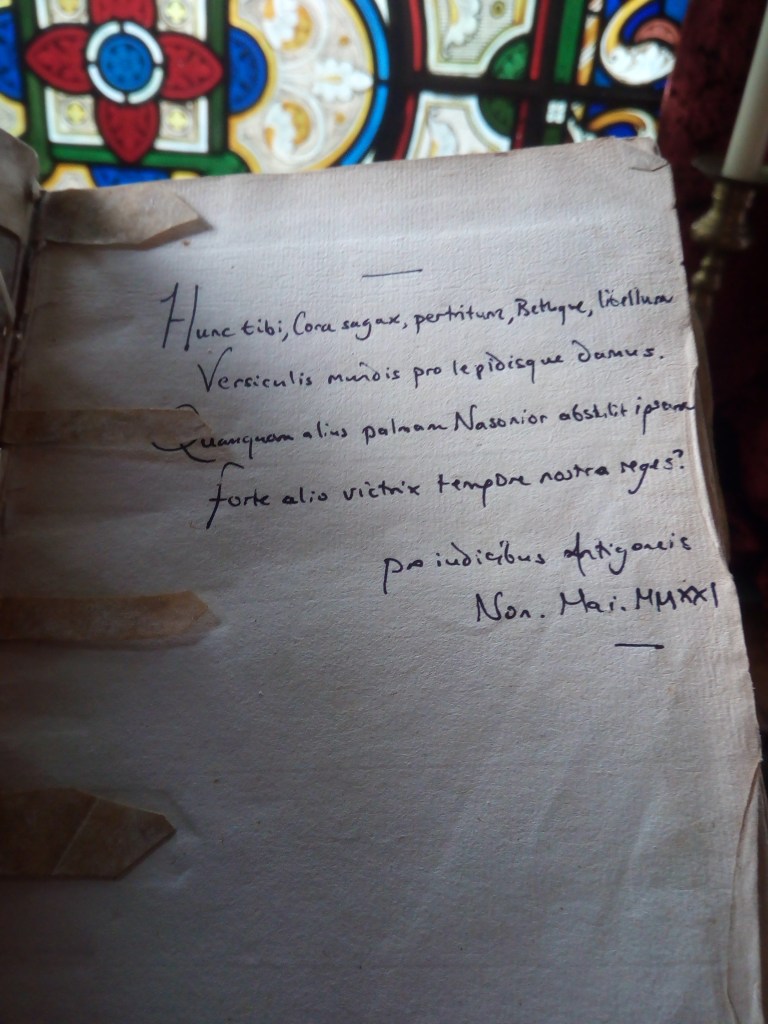 Hunc tibi, Cora sagax, pertritum, Bethque, libellum
Versiculis mundis pro lepidisque damus.
Quamquam alius palmam Nasonior abstulit ipsam
forte alio victrix tempore nostra reges?
pro iudicibus Antigoneis
Non. Mai. MMXXI